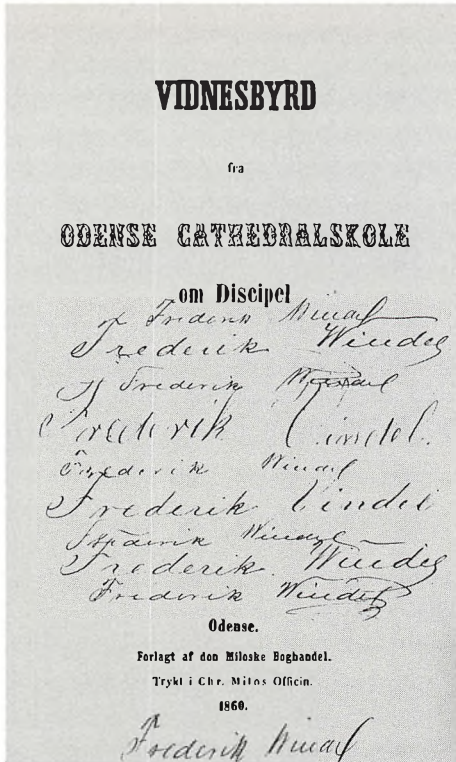 VIDNESBYRD
fra
ODENSE CATHEDRALSKOLE
om Discipel
Frederik Windel
Frederik Windel
Frederik Windel
Frederik Vindel.
Frederik Windel
Frederik Vindel
Frederik Windel
Frederik Windel
Frederik Windel
Odense.
Forlagt af den Miloske Boghandel.
Trykt i Chr. Milos Officin.
1860.
Frederik Windel